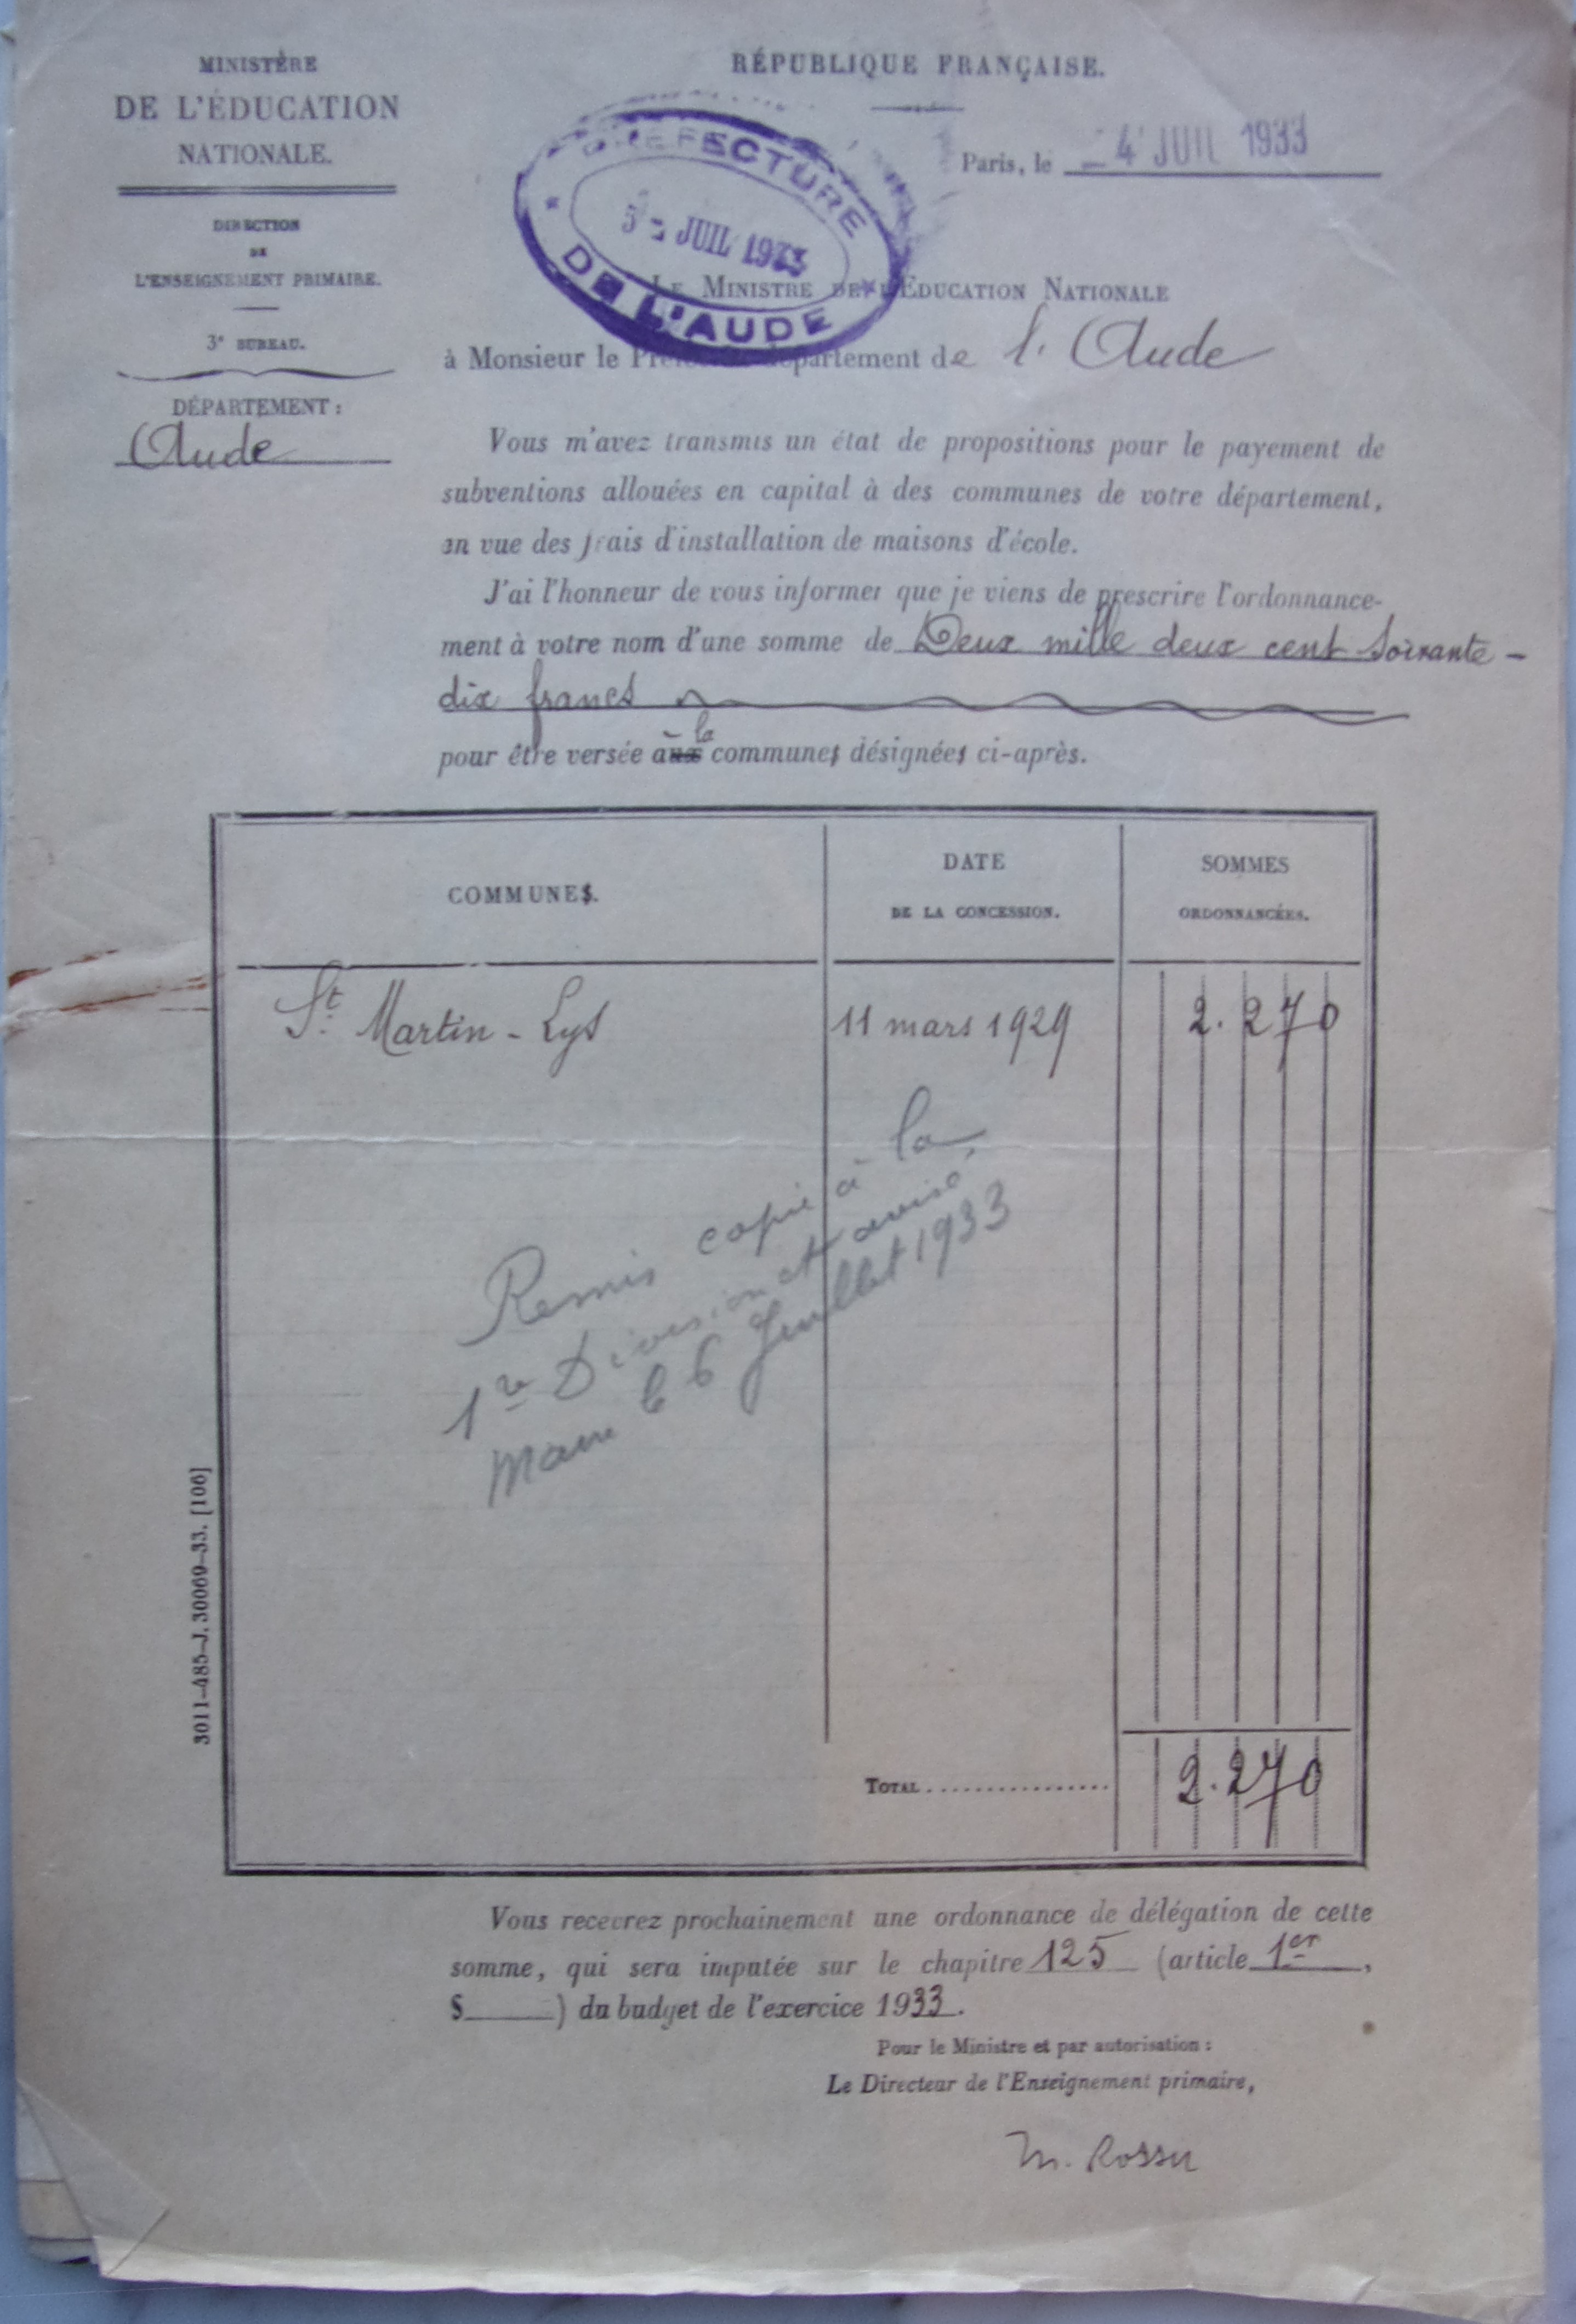 MINISTÈRE
DE L'ÉDUCATION
NATIONALE.
DIRECTION
DE
L'ENSEIGNEMENT PRIMAIRE.
3e BUREAU.
DÉPARTEMENT :
Aude
RÉPUBLIQUE FRANÇAISE.
Paris, le - 4 JUIL 1933
PREFECTURE
5 - JUIL 1933
DE L'AUDE
LE MINISTRE DE L'ÉDUCATION NATIONALE
à Monsieur le Préfet du département de l'Aude
Vous m'avez transmis un état de propositions pour le payement de
subventions allouées en capital à des communes de votre département,
en vue des frais d'installation de maisons d'école.
J'ai l'honneur de vous informer que je viens de prescrire l'ordonnance-
ment à votre nom d'une somme de Deux mille deux cent soixante-
dix francs
pour être versée à la communes désignées ci-après.
COMMUNES.
DATE
DE LA CONCESSION.
SOMMES
ORDONNANCÉES.
St. Martin-Lys 11 mars 1929 2.270
Remis copie à la
1re Division et avisé
Maire le 6 Juillet 1933
TOTAL................ 2.270
3011-485-J. 30069-33. [106]
Vous recevrez prochainement une ordonnance de délégation de cette
somme, qui sera imputée sur le chapitre 125 (article 1er,
§ ) du budget de l'exercice 1933.
Pour le Ministre et par autorisation :
Le Directeur de l'Enseignement primaire,